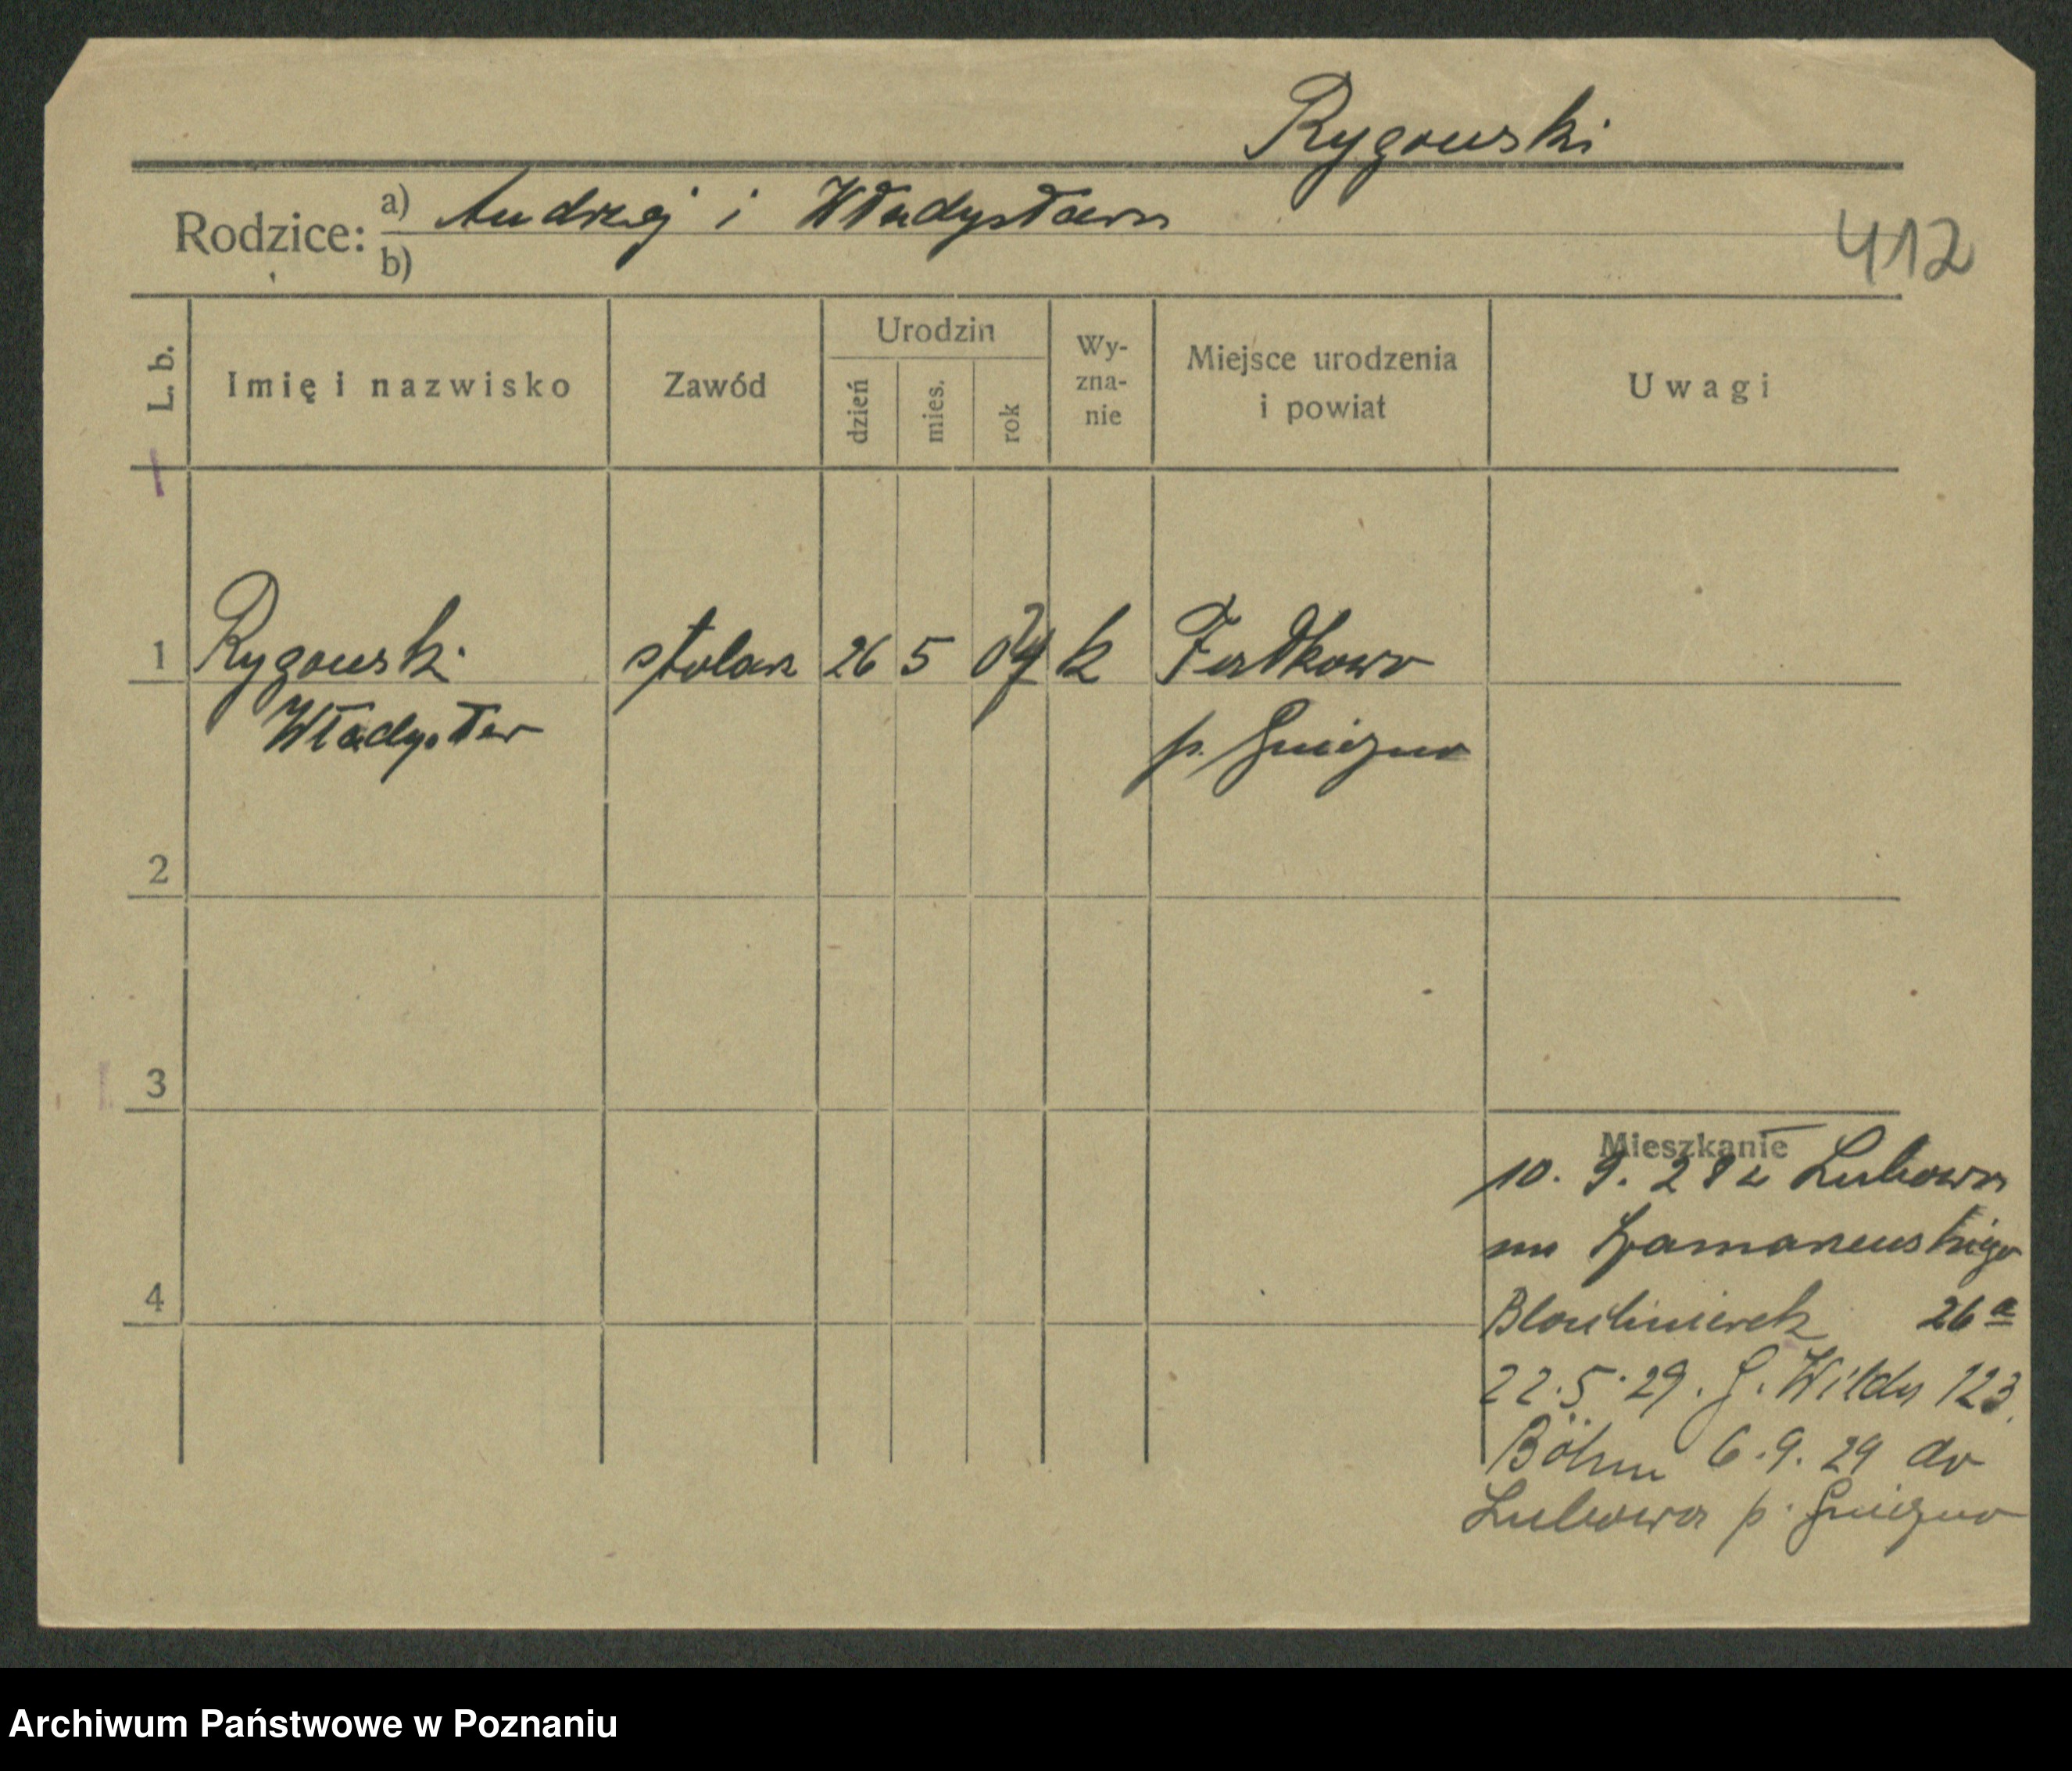 Rygowski
Rodzice: a) Andrzej i Władysława
b)
412
L. b.
Imię i nazwisko
Zawód
Urodzin
dzień
mies.
rok
Wy-
zna-
nie
Miejsce urodzenia
i powiat
Uwagi
1 Rygowski stolarz 26 5 04 k Fałkowo
Władysław p. Gniezno
2
3
4
Mieszkanie
10. 9. 28 z Lubowa
26a
22.5.29. G. Wilda 123.
Böhm 6.9.29 do
Lubowa p. Gniezno
Archiwum Państwowe w Poznaniu